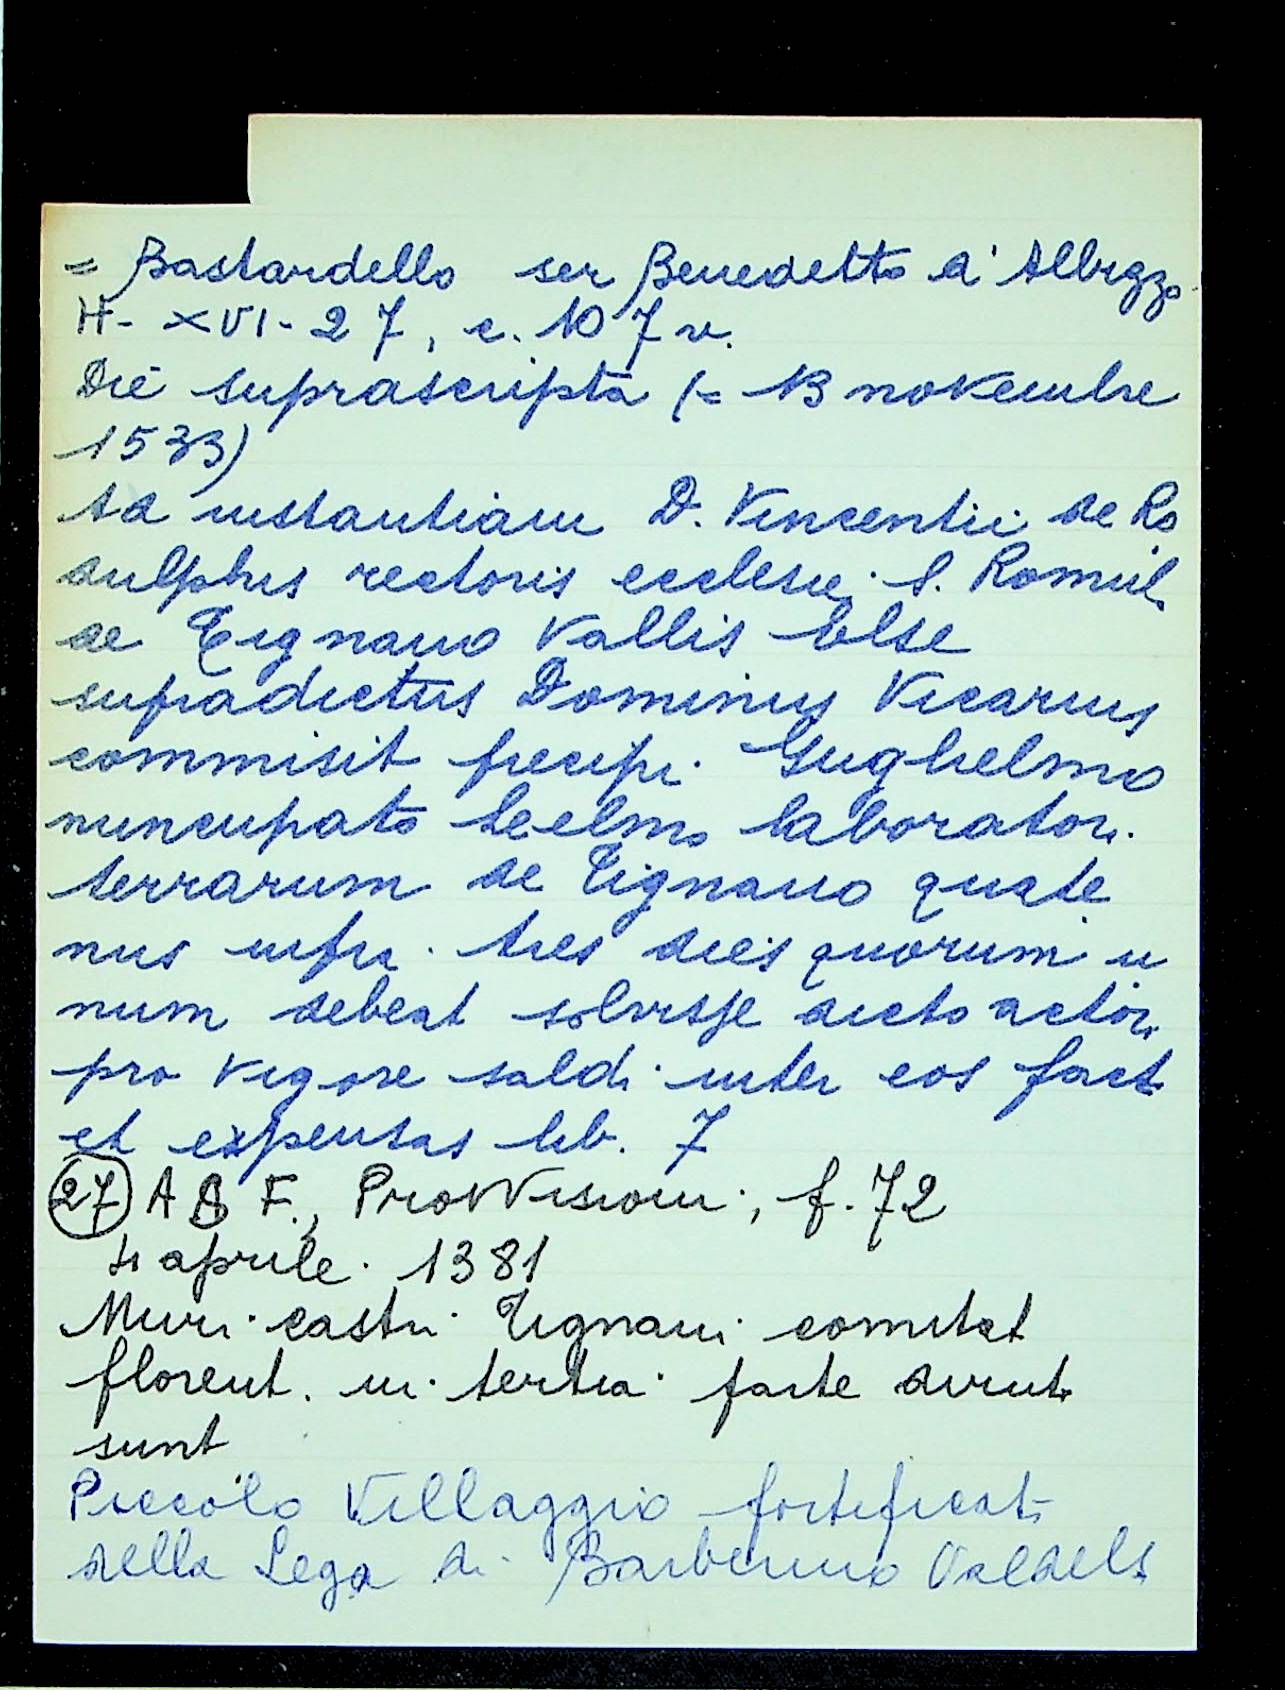 = Bastardello ser Benedetto d'Albizzo
H- XVI- 27, c. 107 v.
Die suprascripta (= 13 novembre
1533)
Ad instantiam D. Vincentii de Ro
dulphis rectoris ecclesie S. Romul.
de Tignano Vallis Else
supradictus Dominus Vicarius
commisit precipi Guglielmo
nuncupato laborator.
terrarum de Tignano quate
nus infr. tres dies quorum u
num debeat solvisse dicto actori
pro vigore saldi inter eos fact.
et expensas lib. 7
(27) A S F., Provvisioni, f. 72
4 aprile 1381
Muri castri Tignani comitat
florent. in tertia parte diruti
sunt
Piccolo Villaggio fortificat.
della Lega di Barberino Valdels.